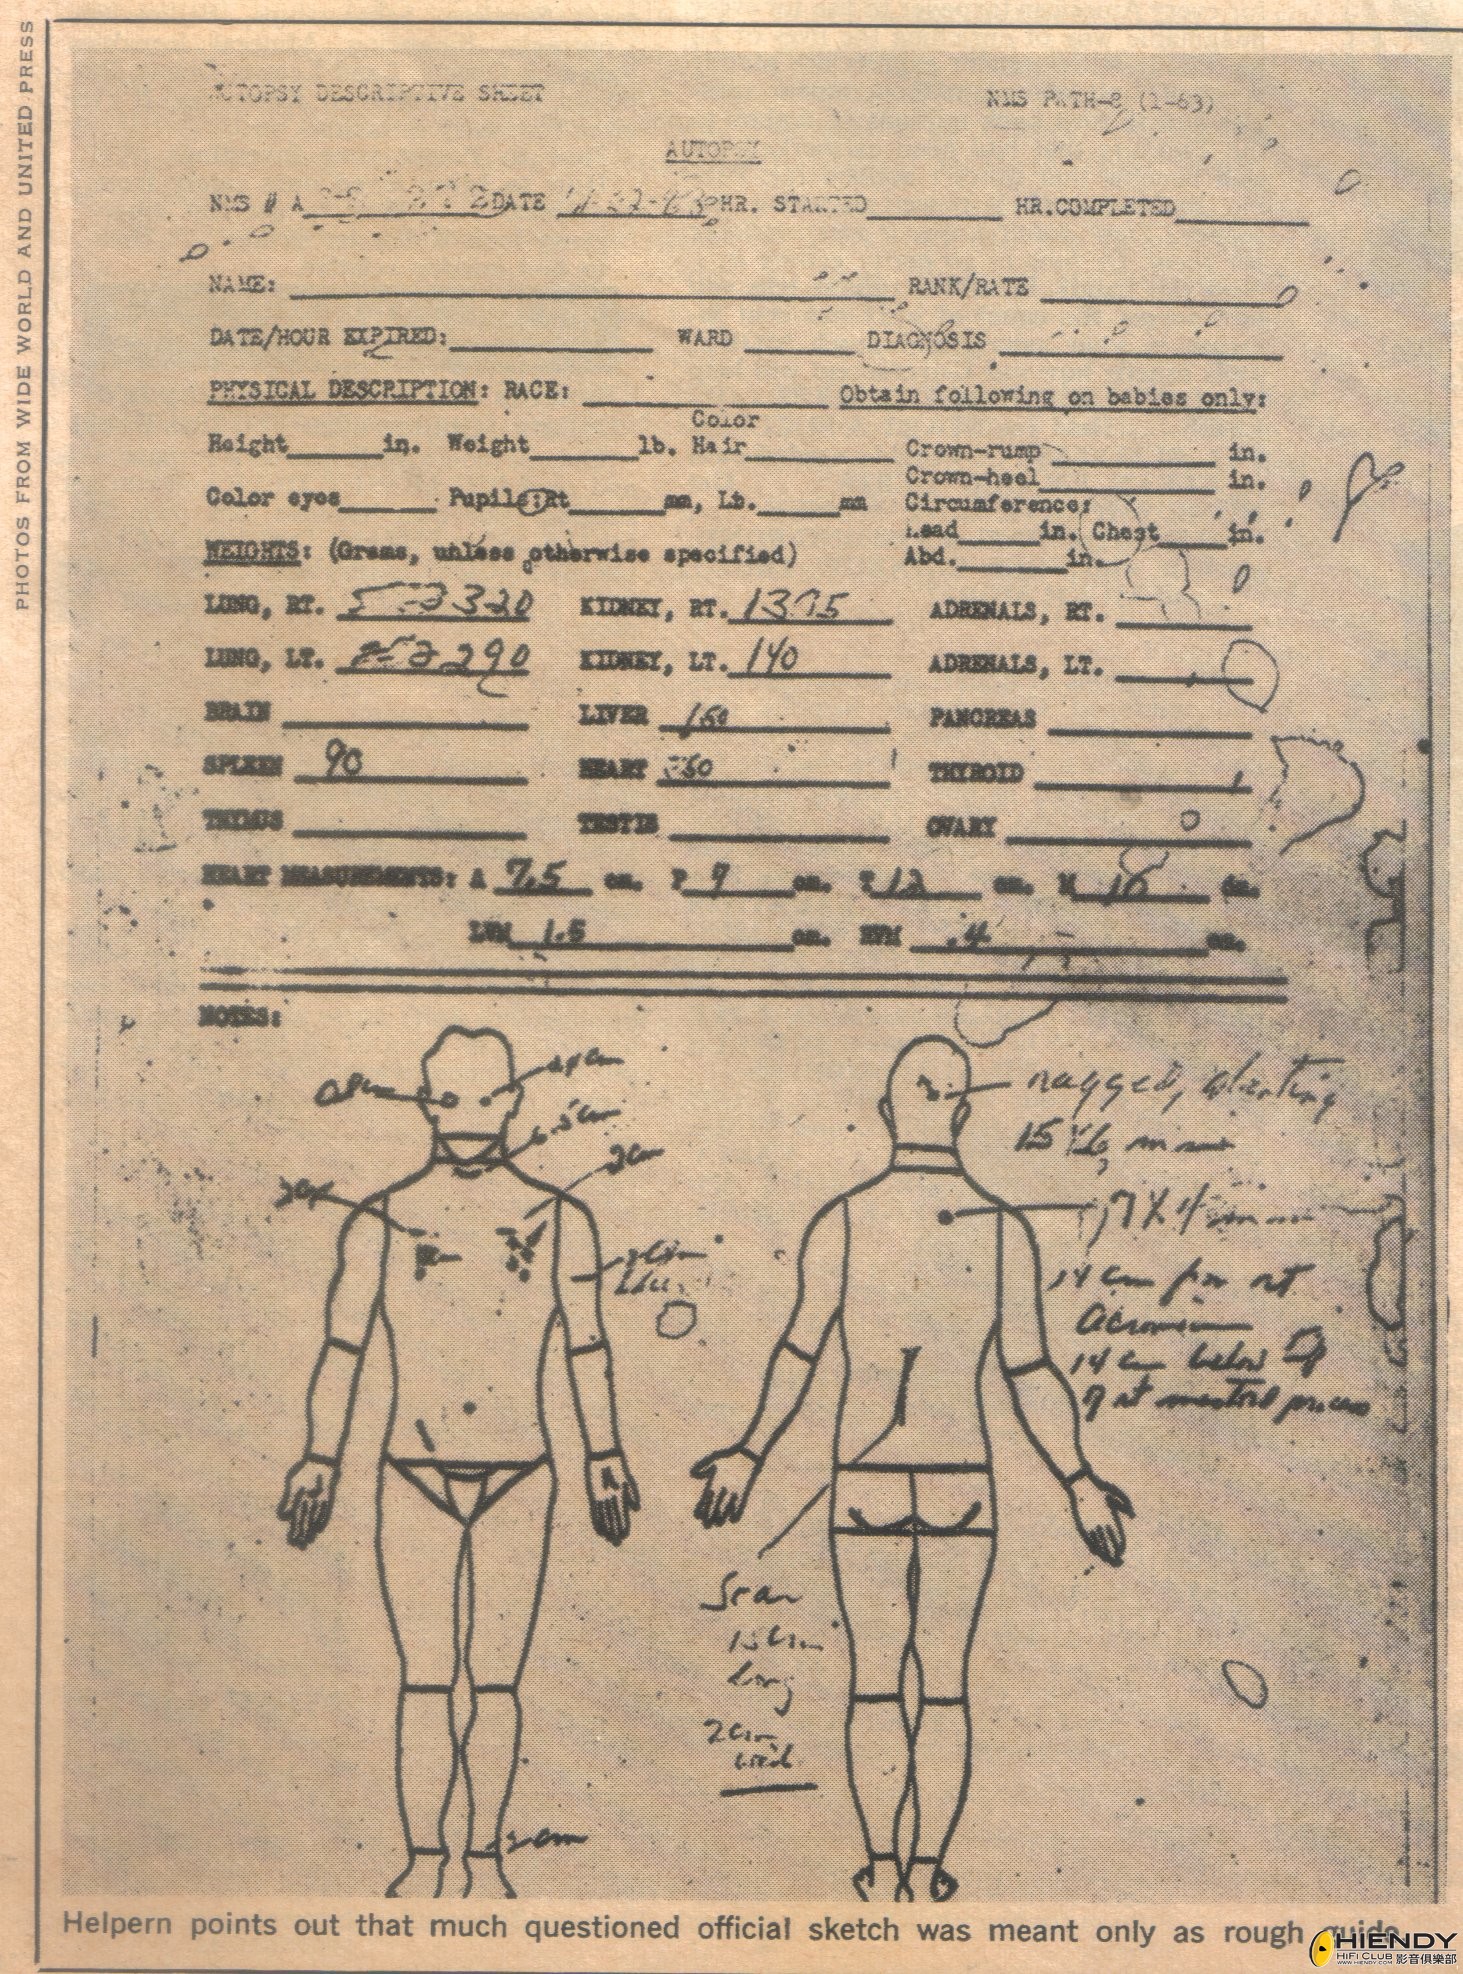 PHOTOS FROM WIDE WORLD AND UNITED PRESS
AUTOPSY DESCRIPTIVE SHEET
NMS PATH-8 (1-63)
AUTOPSY
NMS # A DATE HR. STARTED HR.COMPLETED
NAME: RANK/RATE
DATE/HOUR EXPIRED: WARD DIAGNOSIS
PHYSICAL DESCRIPTION: RACE: Obtain following on babies only:
Height in. Weight lb. Color Hair
Crown-rump in.
Crown-heel in.
Color eyes Pupils:Rt mm, Lt. mm
Circumference:
Head in. Chest in.
WEIGHTS: (Grams, unless otherwise specified)
Abd. in.
LUNG, RT. 320 KIDNEY, RT. ADRENALS, RT.
LUNG, LT. 290 KIDNEY, LT. 140 ADRENALS, LT.
BRAIN LIVER PANCREAS
SPLEEN 90 HEART THYROID
THYMUS TESTIS OVARY
HEART MEASUREMENTS: A 7.5 cm. P 7 cm. T 12 cm. M cm.
LVM 1.5 cm. RVM .4 cm.
NOTES:
ragged, slanting
15 mm
2cm
7 X 4 mm
14 cm from rt
acromion
14 cm below tip
of rt mastoid process
Scar
long
2cm
Helpern points out that much questioned official sketch was meant only as rough guide
HIENDY
HIFI CLUB 影音俱樂部
WWW.HIENDY.COM